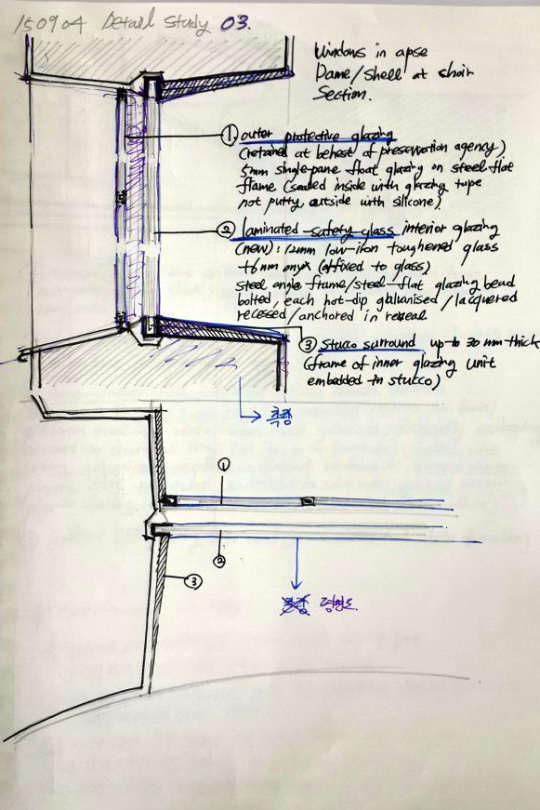 150904 Detail Study 03.
Windows in apse
Dome/shell at choir
Section.
① outer protective glazing
(retained at behest of preservation agency)
5mm single-pane float glazing on steel flat
frame (sealed inside with glazing tape
not putty, outside with silicone)
② laminated safety glass interior glazing
(new): 12mm low-iron toughened glass
+6mm onyx (affixed to glass)
steel angle frame/steel-flat glazing bead
bolted, each hot-dip galvanised/lacquered
recessed/anchored in reveal
③ stucco surround up to 30 mm thick
(frame of inner glazing unit
embedded in stucco)
측창
①
②
③
평면도